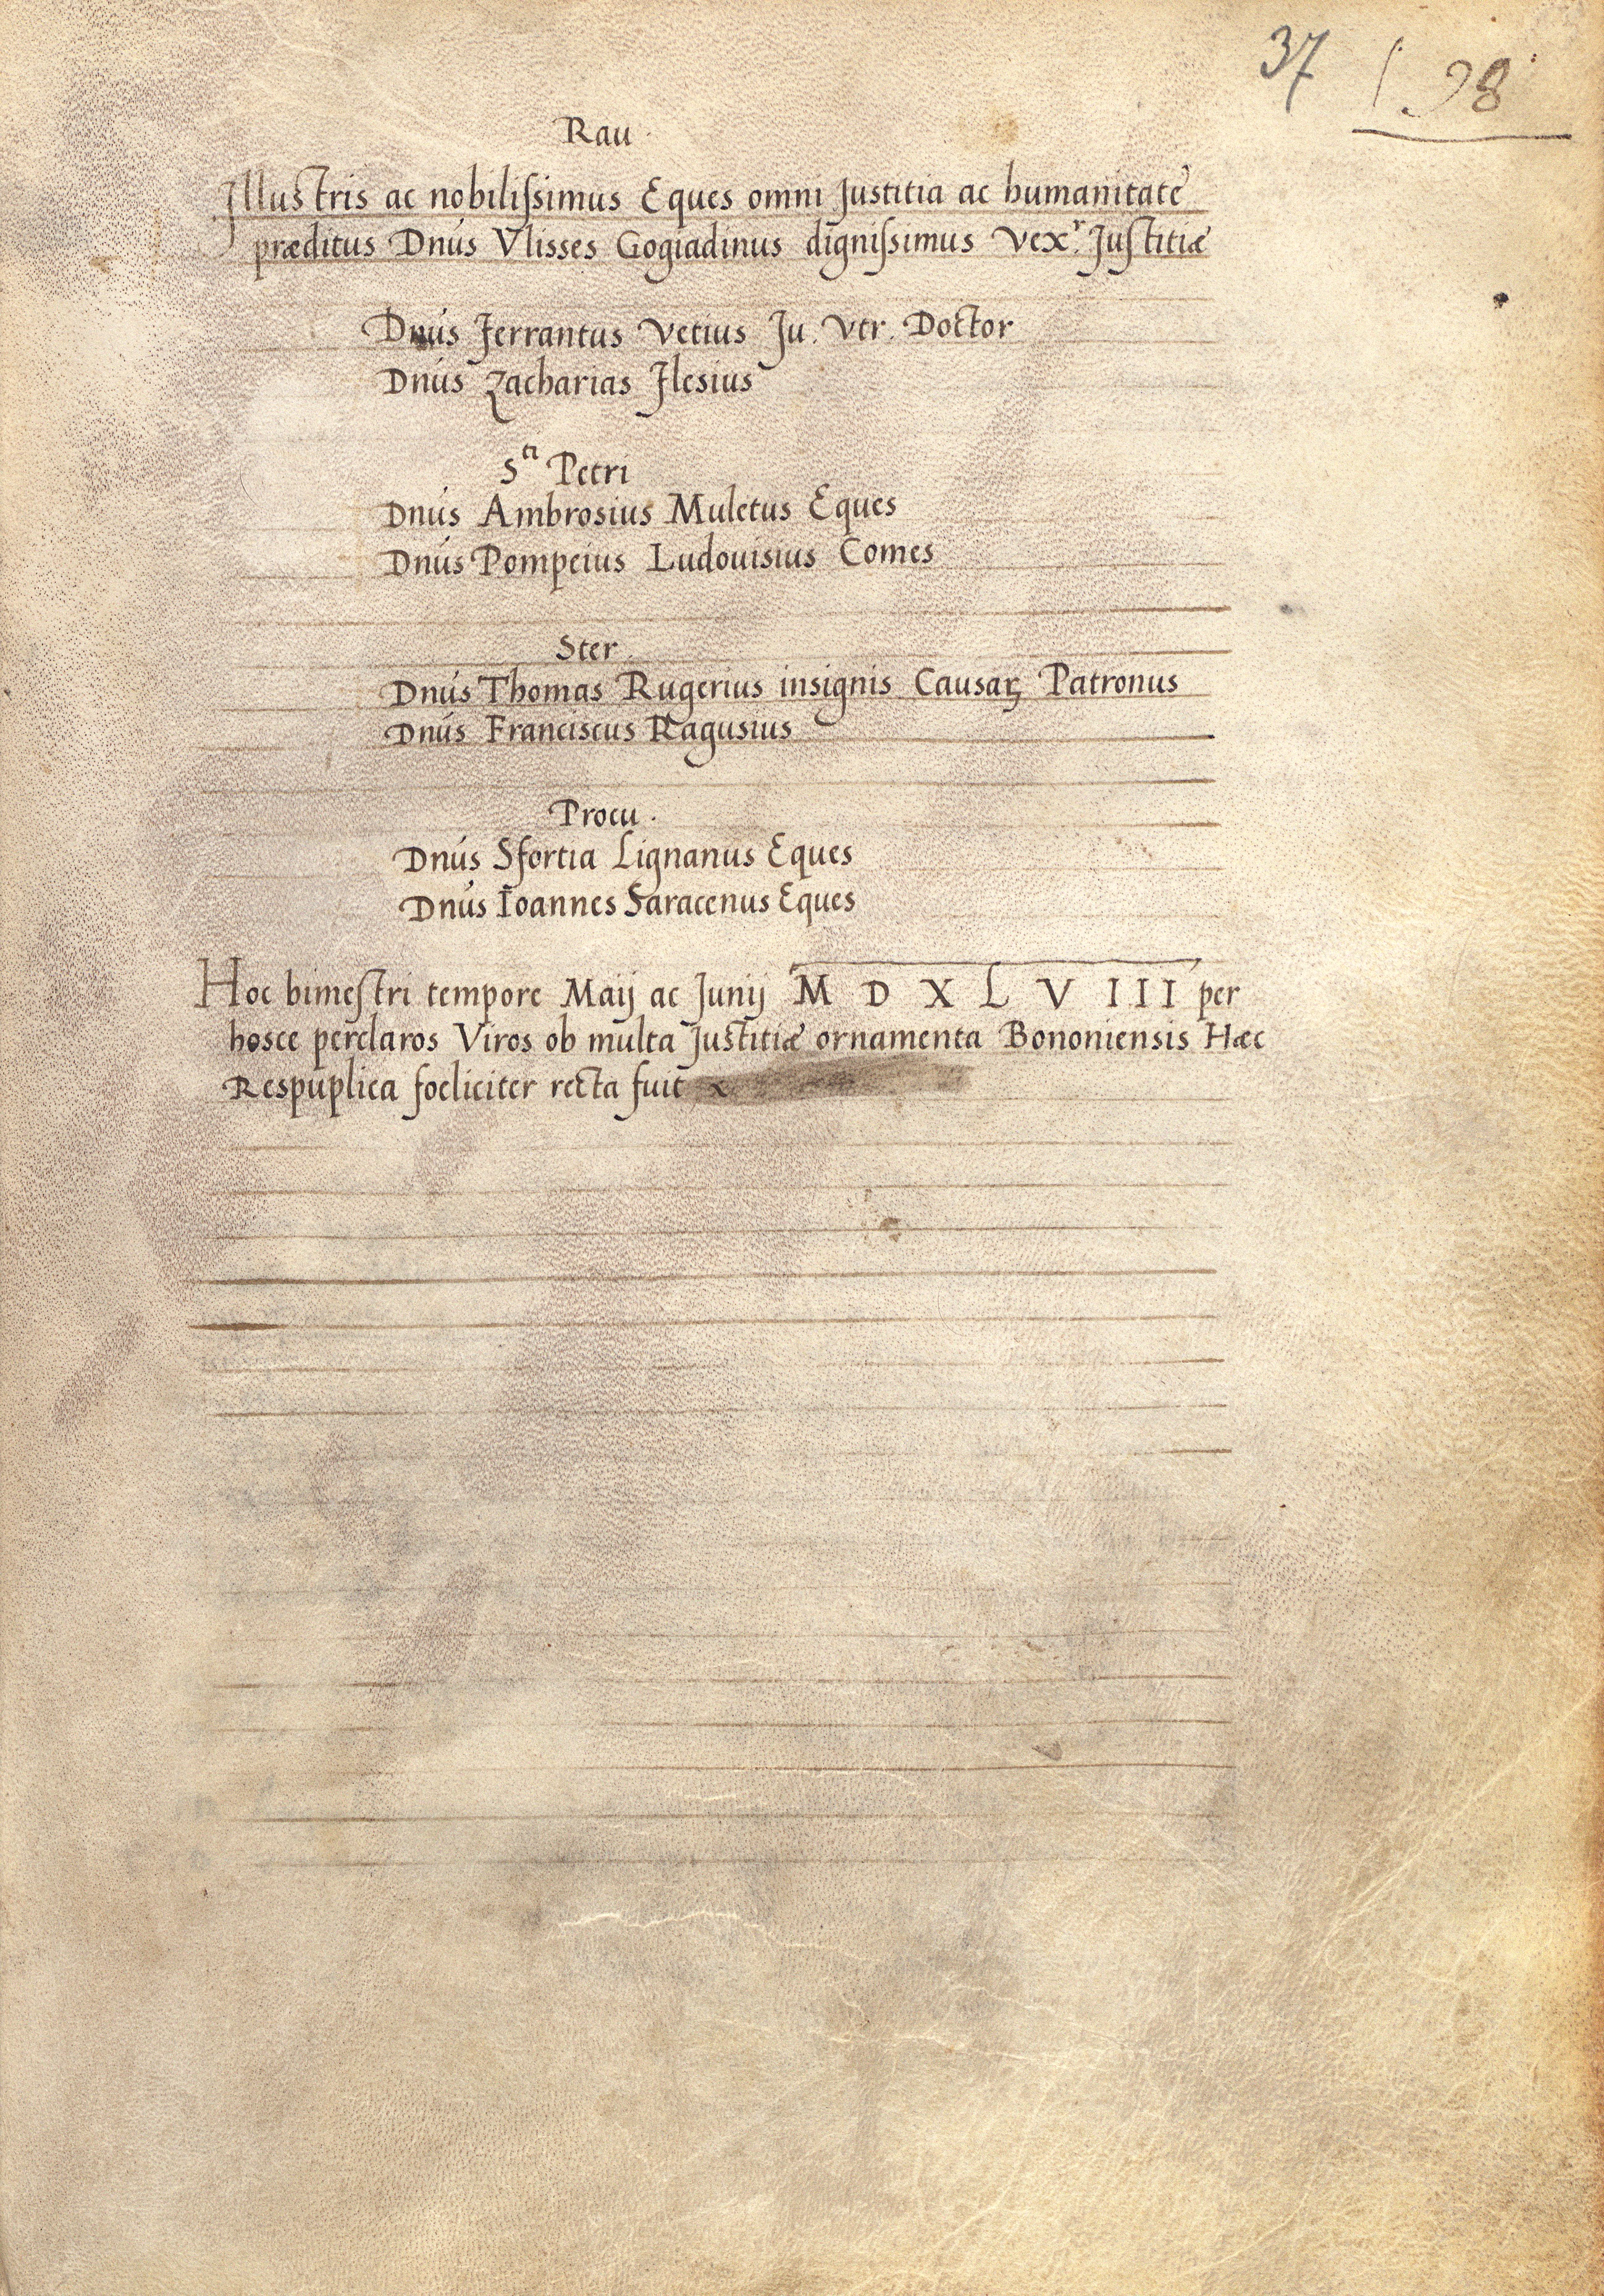 37 98
Rau.
Illustris ac nobilissimus Eques omni Justitia ac humanitate
præditus Dnus Vlisses Gogiadinus dignissimus Vexr. Justitiæ
Dnus Ferrantus Vetius Ju. Vtr. Doctor
Dnus Zacharias Ilesius
Sti Petri
Dnus Ambrosius Muletus Eques
Dnus Pompeius Ludouisius Comes
Ster.
Dnus Thomas Rugerius insignis Causaꝝ Patronus
Dnus Franciscus Ragusius
Procu.
Dnus Sfortia Lignanus Eques
Dnus Ioannes Saracenus Eques
Hoc bimestri tempore Maij ac Junij M D X L V I I I per
hosce perclaros Viros ob multa Justitiæ ornamenta Bononiensis Hæc
Respuplica foeliciter recta fuit